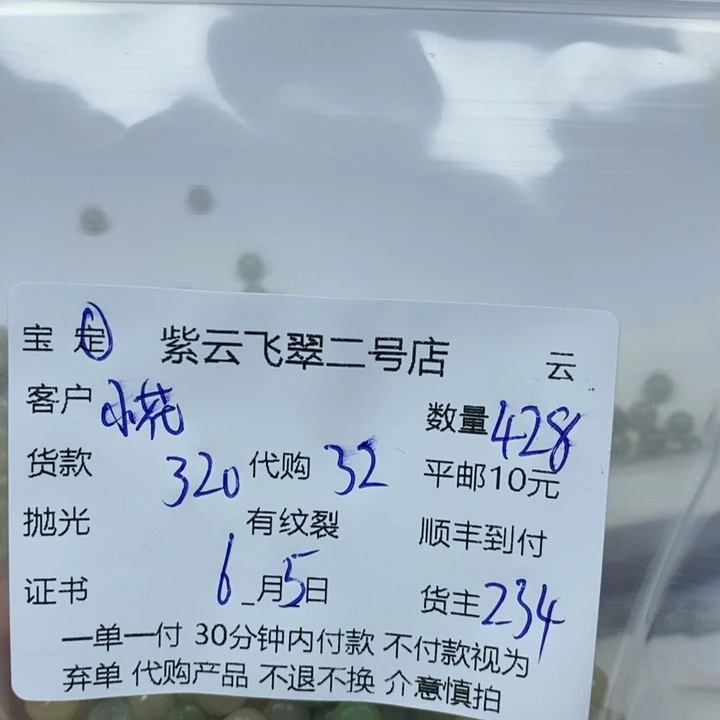 宝 定 紫云飞翠二号店 云
客户 小花 数量 428
货款 320 代购 32 平邮10元
抛光 有纹裂 顺丰到付
证书 6_月5日 货主 234
一单一付 30分钟内付款 不付款视为
弃单 代购产品 不退不换 介意慎拍